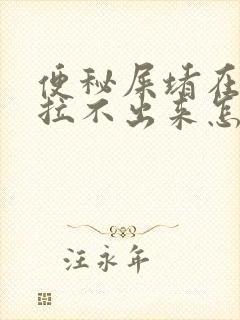 便秘屎堵在
拉不出来怎
汪永年